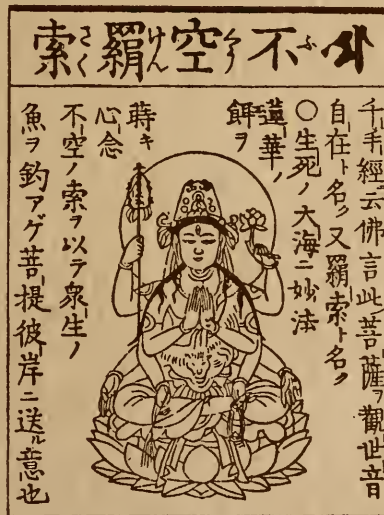 不空羂索
ふくうけんさく
千手經云佛言此ノ菩薩ヲ觀世音
自在ト名ク又羂索ト名ク
○生死ノ大海ニ妙法
蓮華ノ
餌ヲ
蒔キ
心念
不空ノ索ヲ以テ衆生ノ
魚ヲ釣アゲ菩提彼岸ニ送ル意也